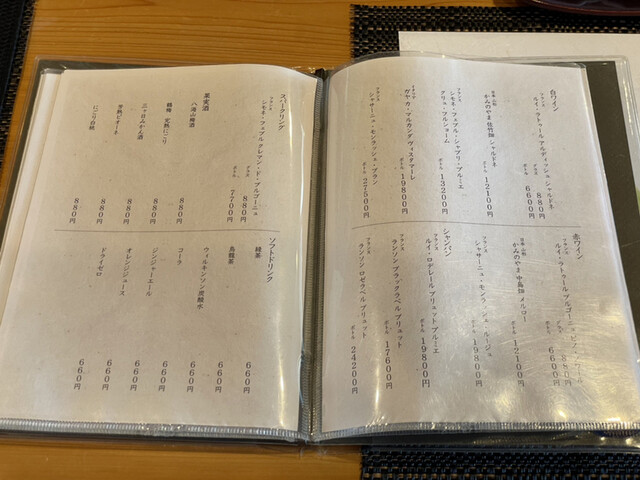 白ワイン
フランス
ルイ・ラトゥール アルディッシュ シャルドネ
グラス 880円
ボトル 6600円
かんのやま 佐竹畑 シャルドネ
ボトル 12100円
フランス
シモネ・フェブル・シャブリ・プルミエ・
クリュ・フルショーム
ボトル 13200円
イタリア
ガヤ カ・マルカンダ ヴィスタマーレ
ボトル 19800円
フランス
シャサーニュ・モンラッシェ・ブラン
ボトル 27500円
赤ワイン
フランス
ルイ・ラトゥール ブルゴーニュ ピノ・ノワール
グラス 880円
ボトル 6600円
かんのやま 中島畑 メルロー
ボトル 12100円
フランス
シャサーニュ・モンラッシェ・ルージュ
ボトル 19800円
シャンパン
フランス
ルイ・ロデレール ブリュット プルミエ
ボトル 19800円
フランス
ランソン ブラックラベル ブリュット
ボトル 17600円
フランス
ランソン ロゼラベル ブリュット
ボトル 24200円
スパークリング
フランス
シモネ・フェブル クレマン・ド・ブルゴーニュ
グラス 880円
ボトル 7700円
果実酒
八海山梅酒 880円
鶴梅 完熟にごり 880円
三ヶ日みかん酒 880円
880円
にごり白桃 880円
ソフトドリンク
緑茶 660円
烏龍茶 660円
ウィルキンソン炭酸水 660円
コーラ 660円
ジンジャーエール 660円
オレンジジュース 660円
ドライゼロ 660円